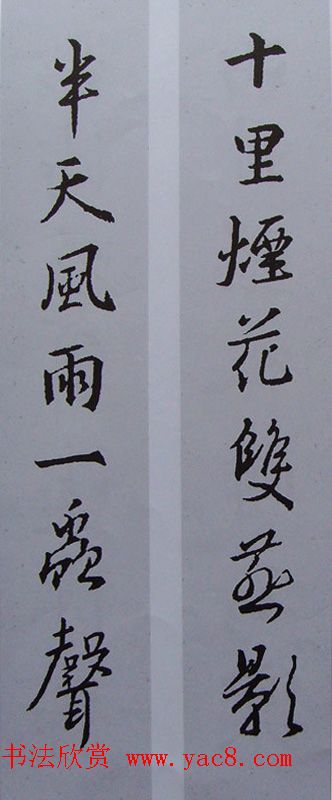 十里煙花雙燕影
半天風雨一蟲聲
书法欣赏 www.yac8.com